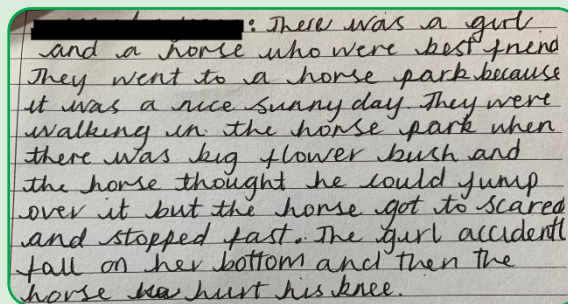 : There was a girl
and a horse who were best friend
They went to a horse park because
it was a nice sunny day. They were
walking in the horse park when
there was big flower bush and
the horse thought he could jump
over it but the horse got to scared
and stopped fast. The girl accidentl
fall on her bottom and then the
horse hurt his knee.